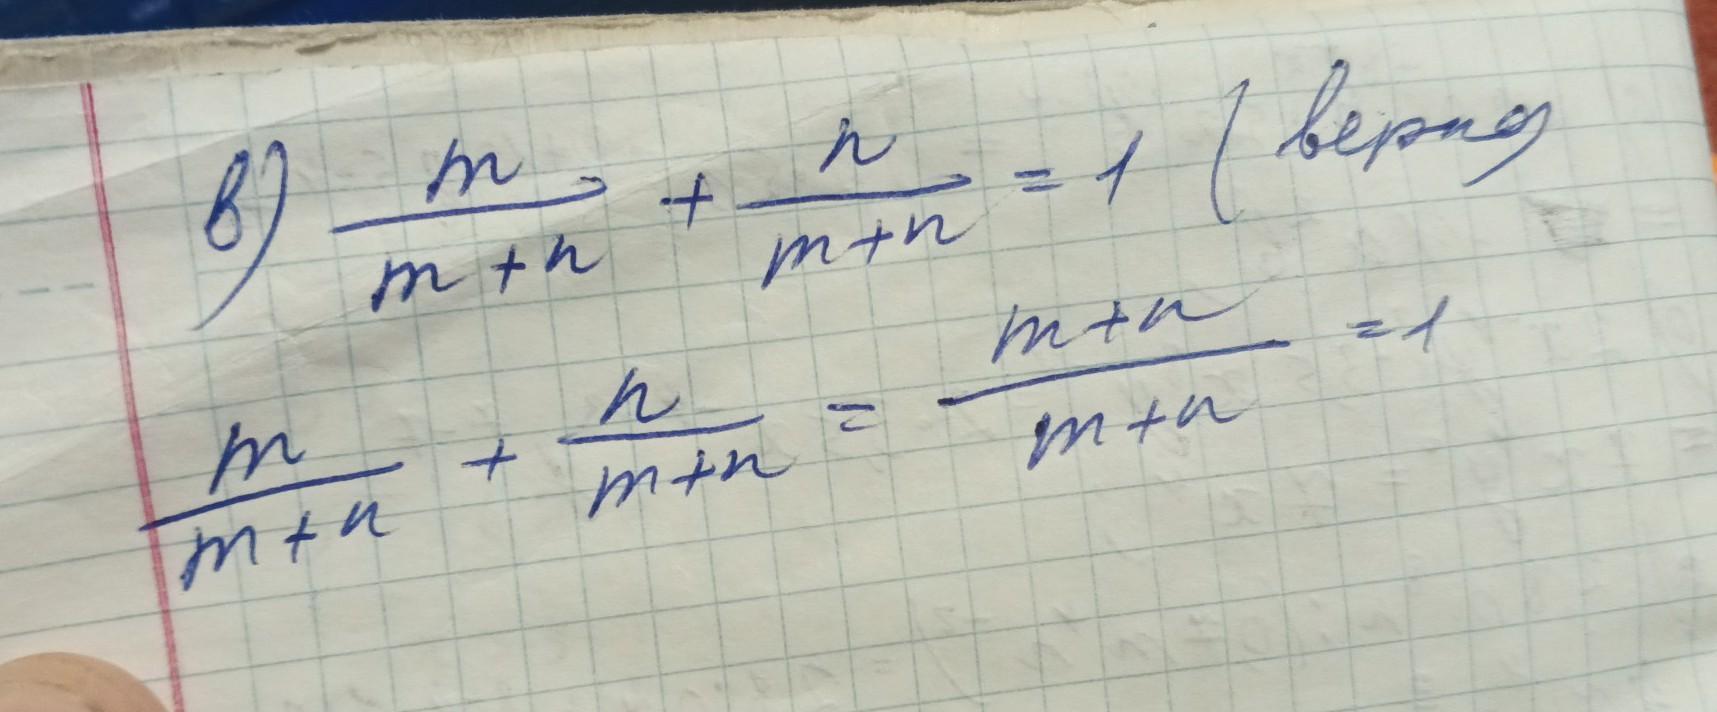 в) m/(m+n) + n/(m+n) = 1 (верно)
m/(m+n) + n/(m+n) = (m+n)/(m+n) = 1